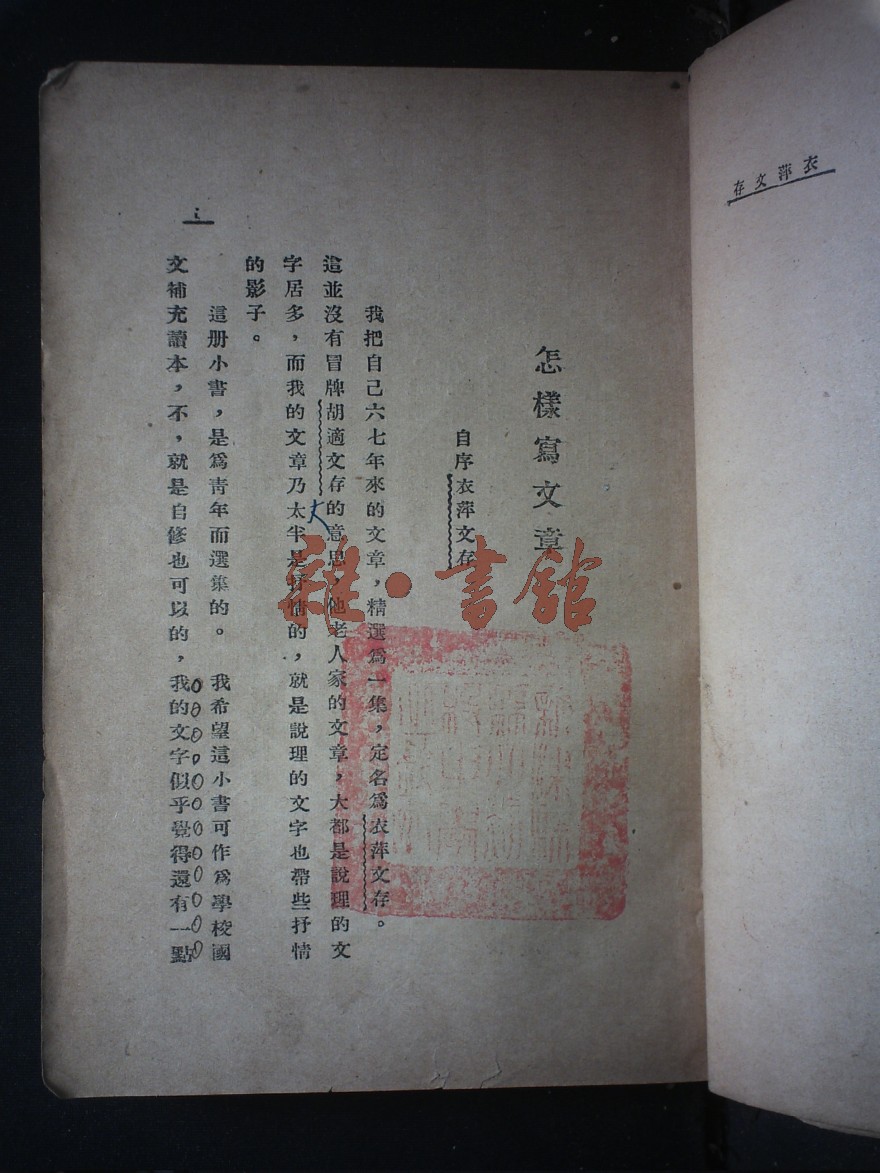 衣萍文存
怎樣寫文章
自序衣萍文存
我把自己六七年來的文章，精選爲一集，定名爲衣萍文存。
這並沒有冒牌胡適文存的意思，他老人家的文章，大都是說理的文
字居多，而我的文章乃太半是抒情的，就是說理的文字也帶些抒情
的影子。
這册小書，是爲青年而選集的。我希望這小書可作爲學校國
文補充讀本，不，就是自修也可以的，我的文字似乎覺得還有一點
i
大
雜·書館